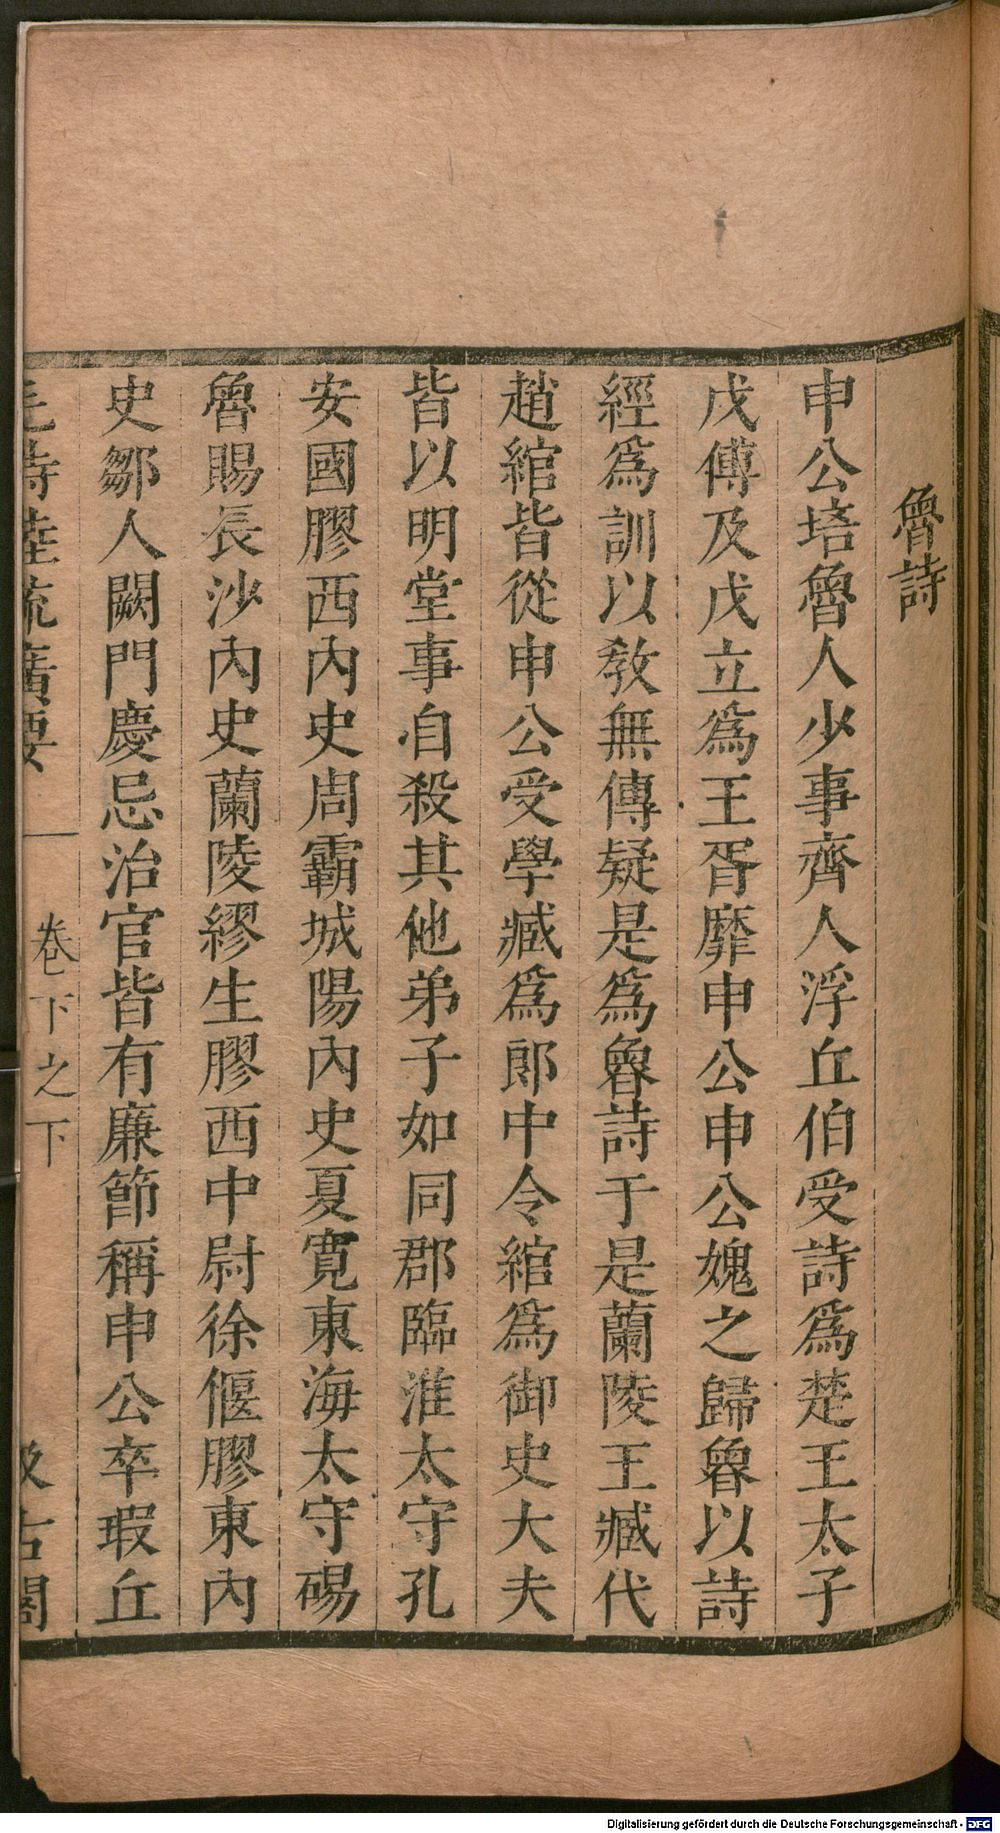 魯詩
申公培魯人少事齊人浮丘伯受詩爲楚王太子
戊傅及戊立爲王胥靡申公申公媿之歸魯以詩
經爲訓以敎無傳疑是爲魯詩于是蘭陵王臧代
趙綰皆從申公受學臧爲郎中令綰爲御史大夫
皆以明堂事自殺其他弟子如同郡臨淮太守孔
安國膠西內史周霸城陽內史夏寬東海太守碭
魯賜長沙內史蘭陵繆生膠西中尉徐偃膠東內
史鄒人闕門慶忌治官皆有廉節稱申公卒瑕丘
毛詩陸疏廣要 卷下之下 汲古閣
Digitalisierung gefördert durch die Deutsche Forschungsgemeinschaft - DFG